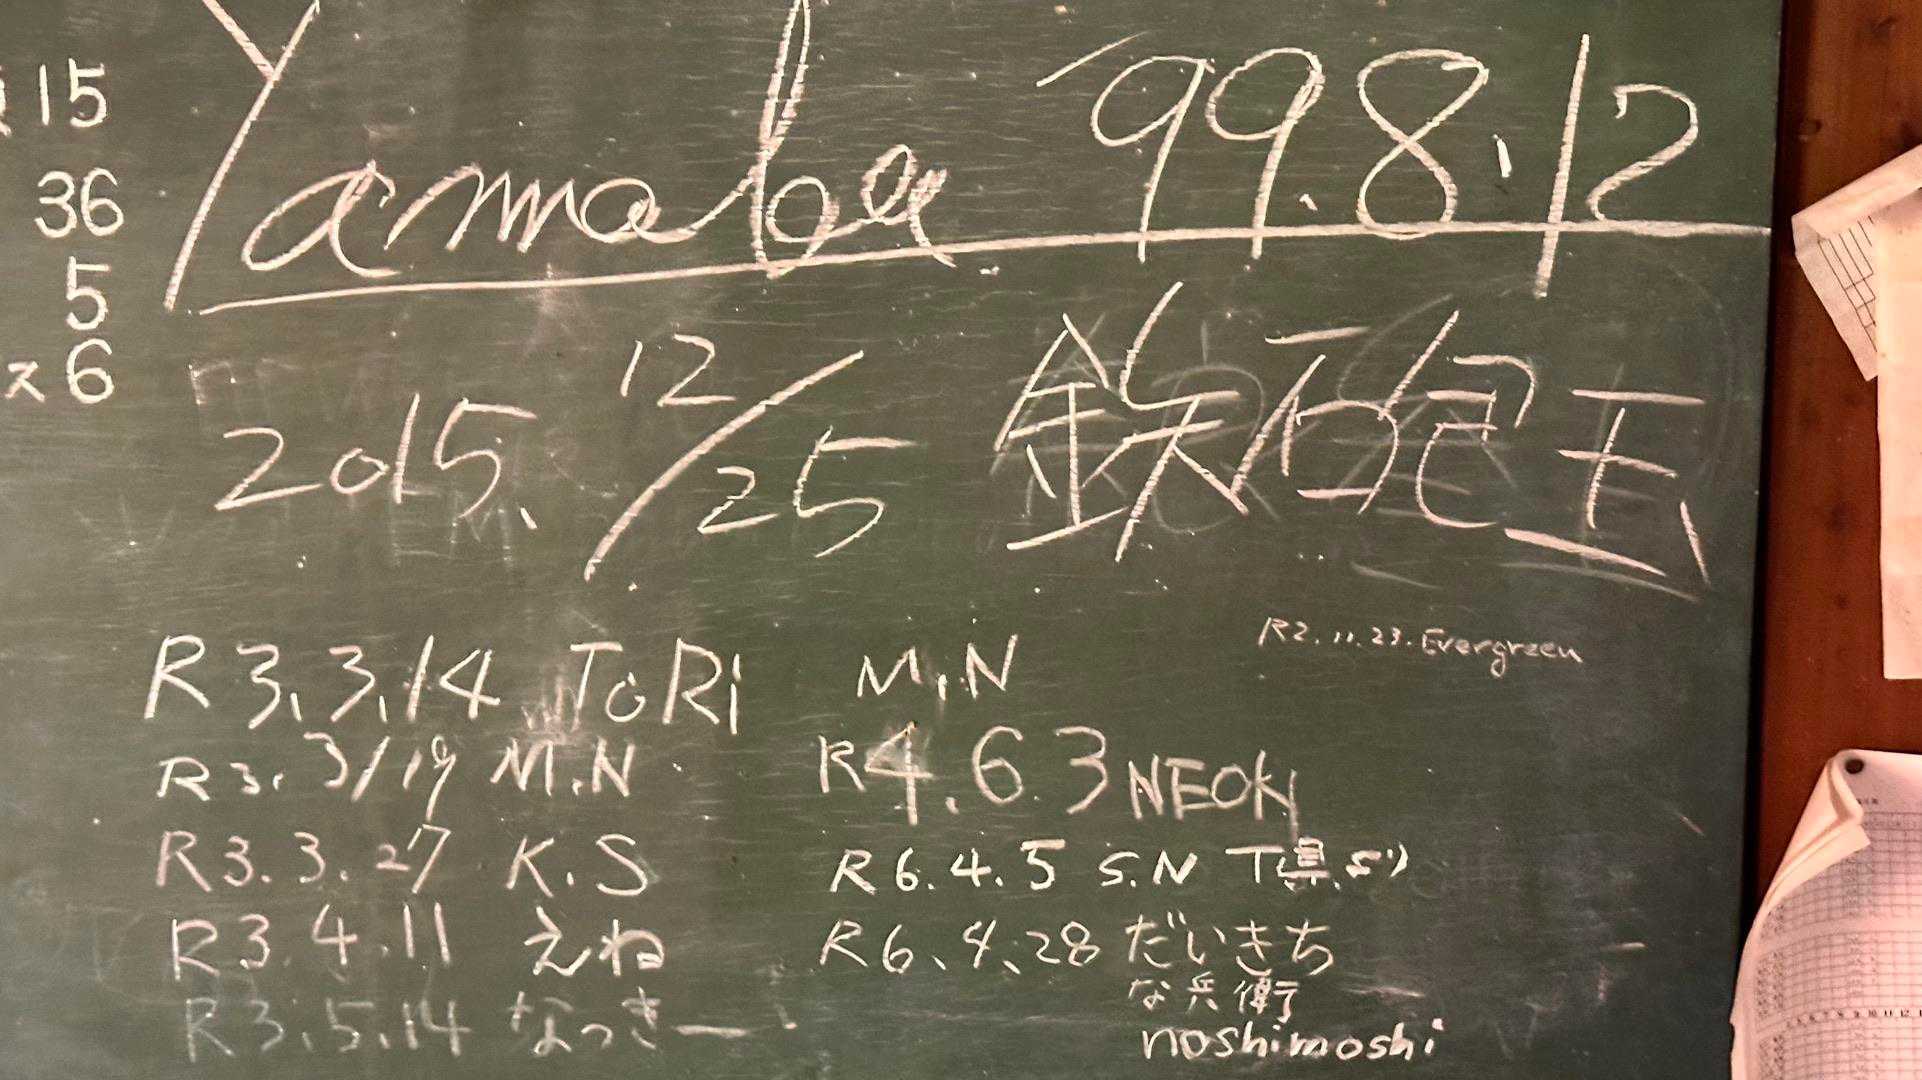 15
36
5
x 6
Yamabe 99.8.12
2015. 12/25 鉄砲玉
R2.11.23.Evergreen
R3.3.14 ToRi
R3.3/19 M.N
R3.3.27 K.S
R3.4.11 えね
R3.5.14 なっきー
M.N
R4.6.3 NEON
R6.4.5 S.N T県より
R6.4.28 だいきち
な兵衛
noshimoshi